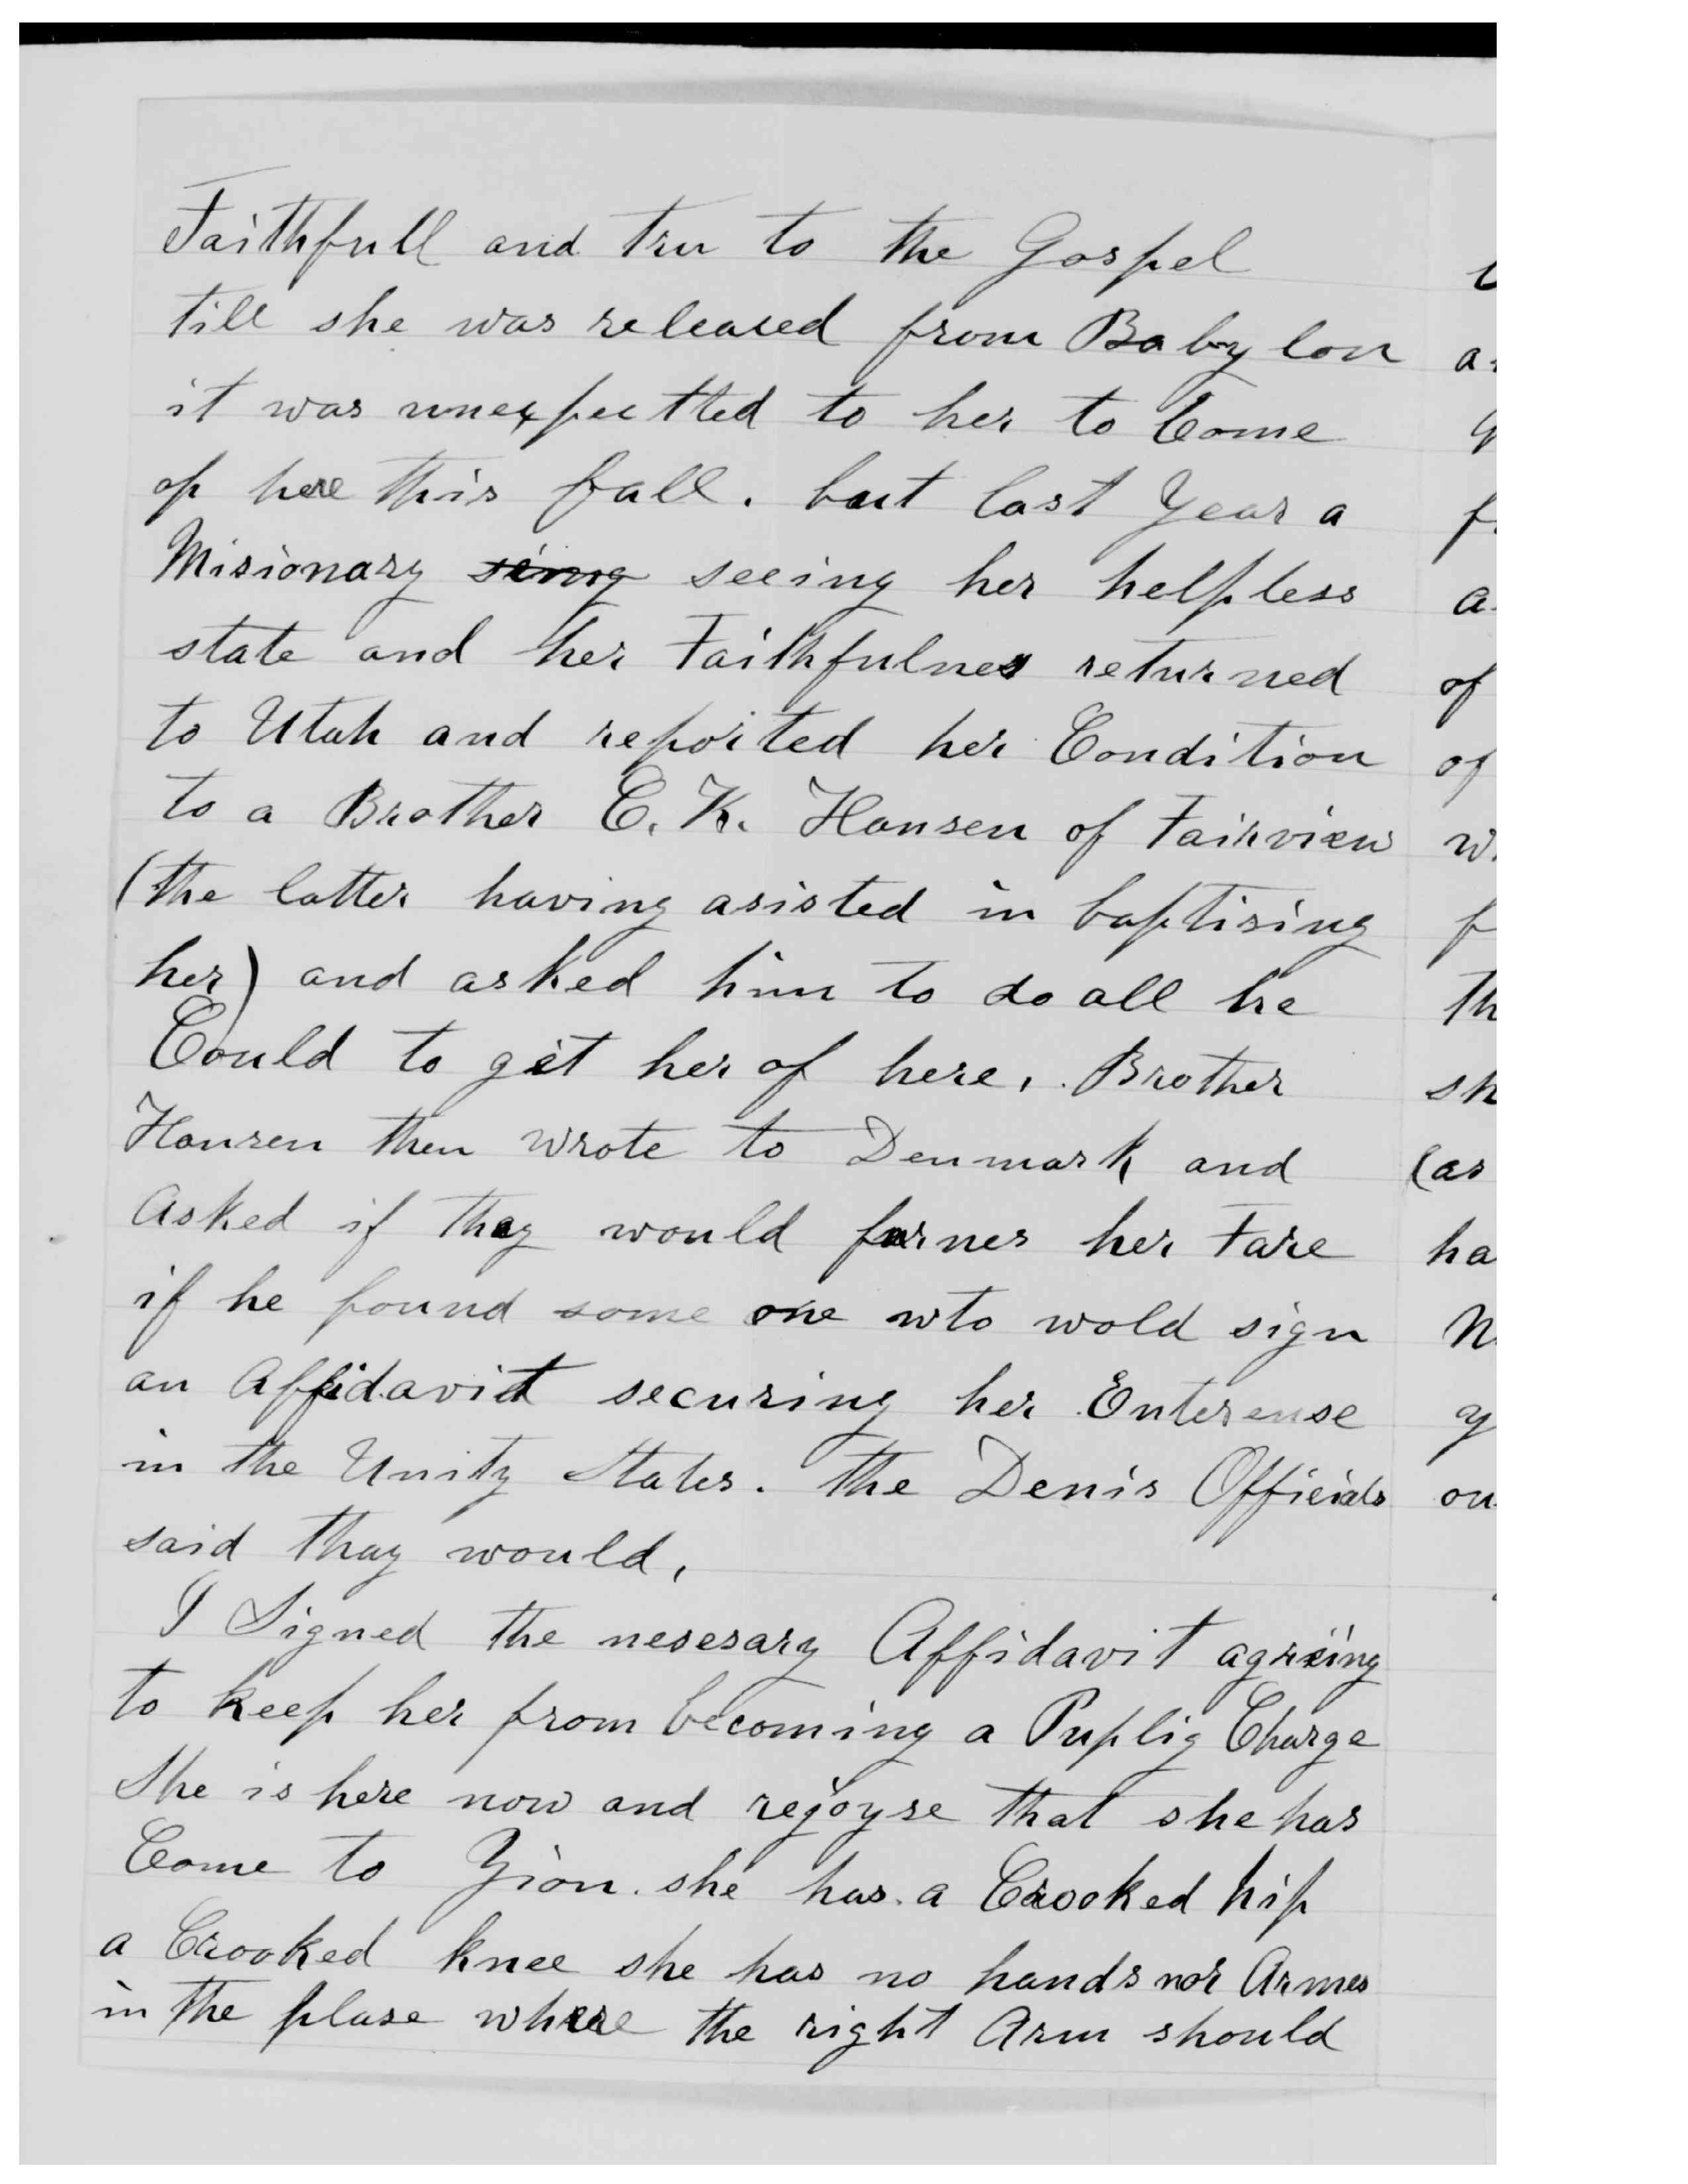 Faithfull and tru to the Gospel
till she was released from Babylon
it was unexpecttted to her to Come
op here this fall. but last Year a
Misionary sing seeing her helpless
state and her Faithfulnes returned
to Utah and reported her Condition
to a Brother C. K. Hansen of Fairview
(the latter having asisted in baptising
her) and asked him to do all he
Could to get her of here, Brother
Hansen then wrote to Denmark and
Asked if thay would furnes her Fare
if he found some one who wold sign
an Affidavit securing her Enterense
in the Unity States. the Denis Officials
said thay would,
I Signed the nesesary Affidavit agreing
to keep her from becoming a Puplig Charge
She is here now and rejoyse that she has
Come to Zion. she has a Crooked hip
a Crooked knee she has no hands nor Armes
in the plase where the right Arm should